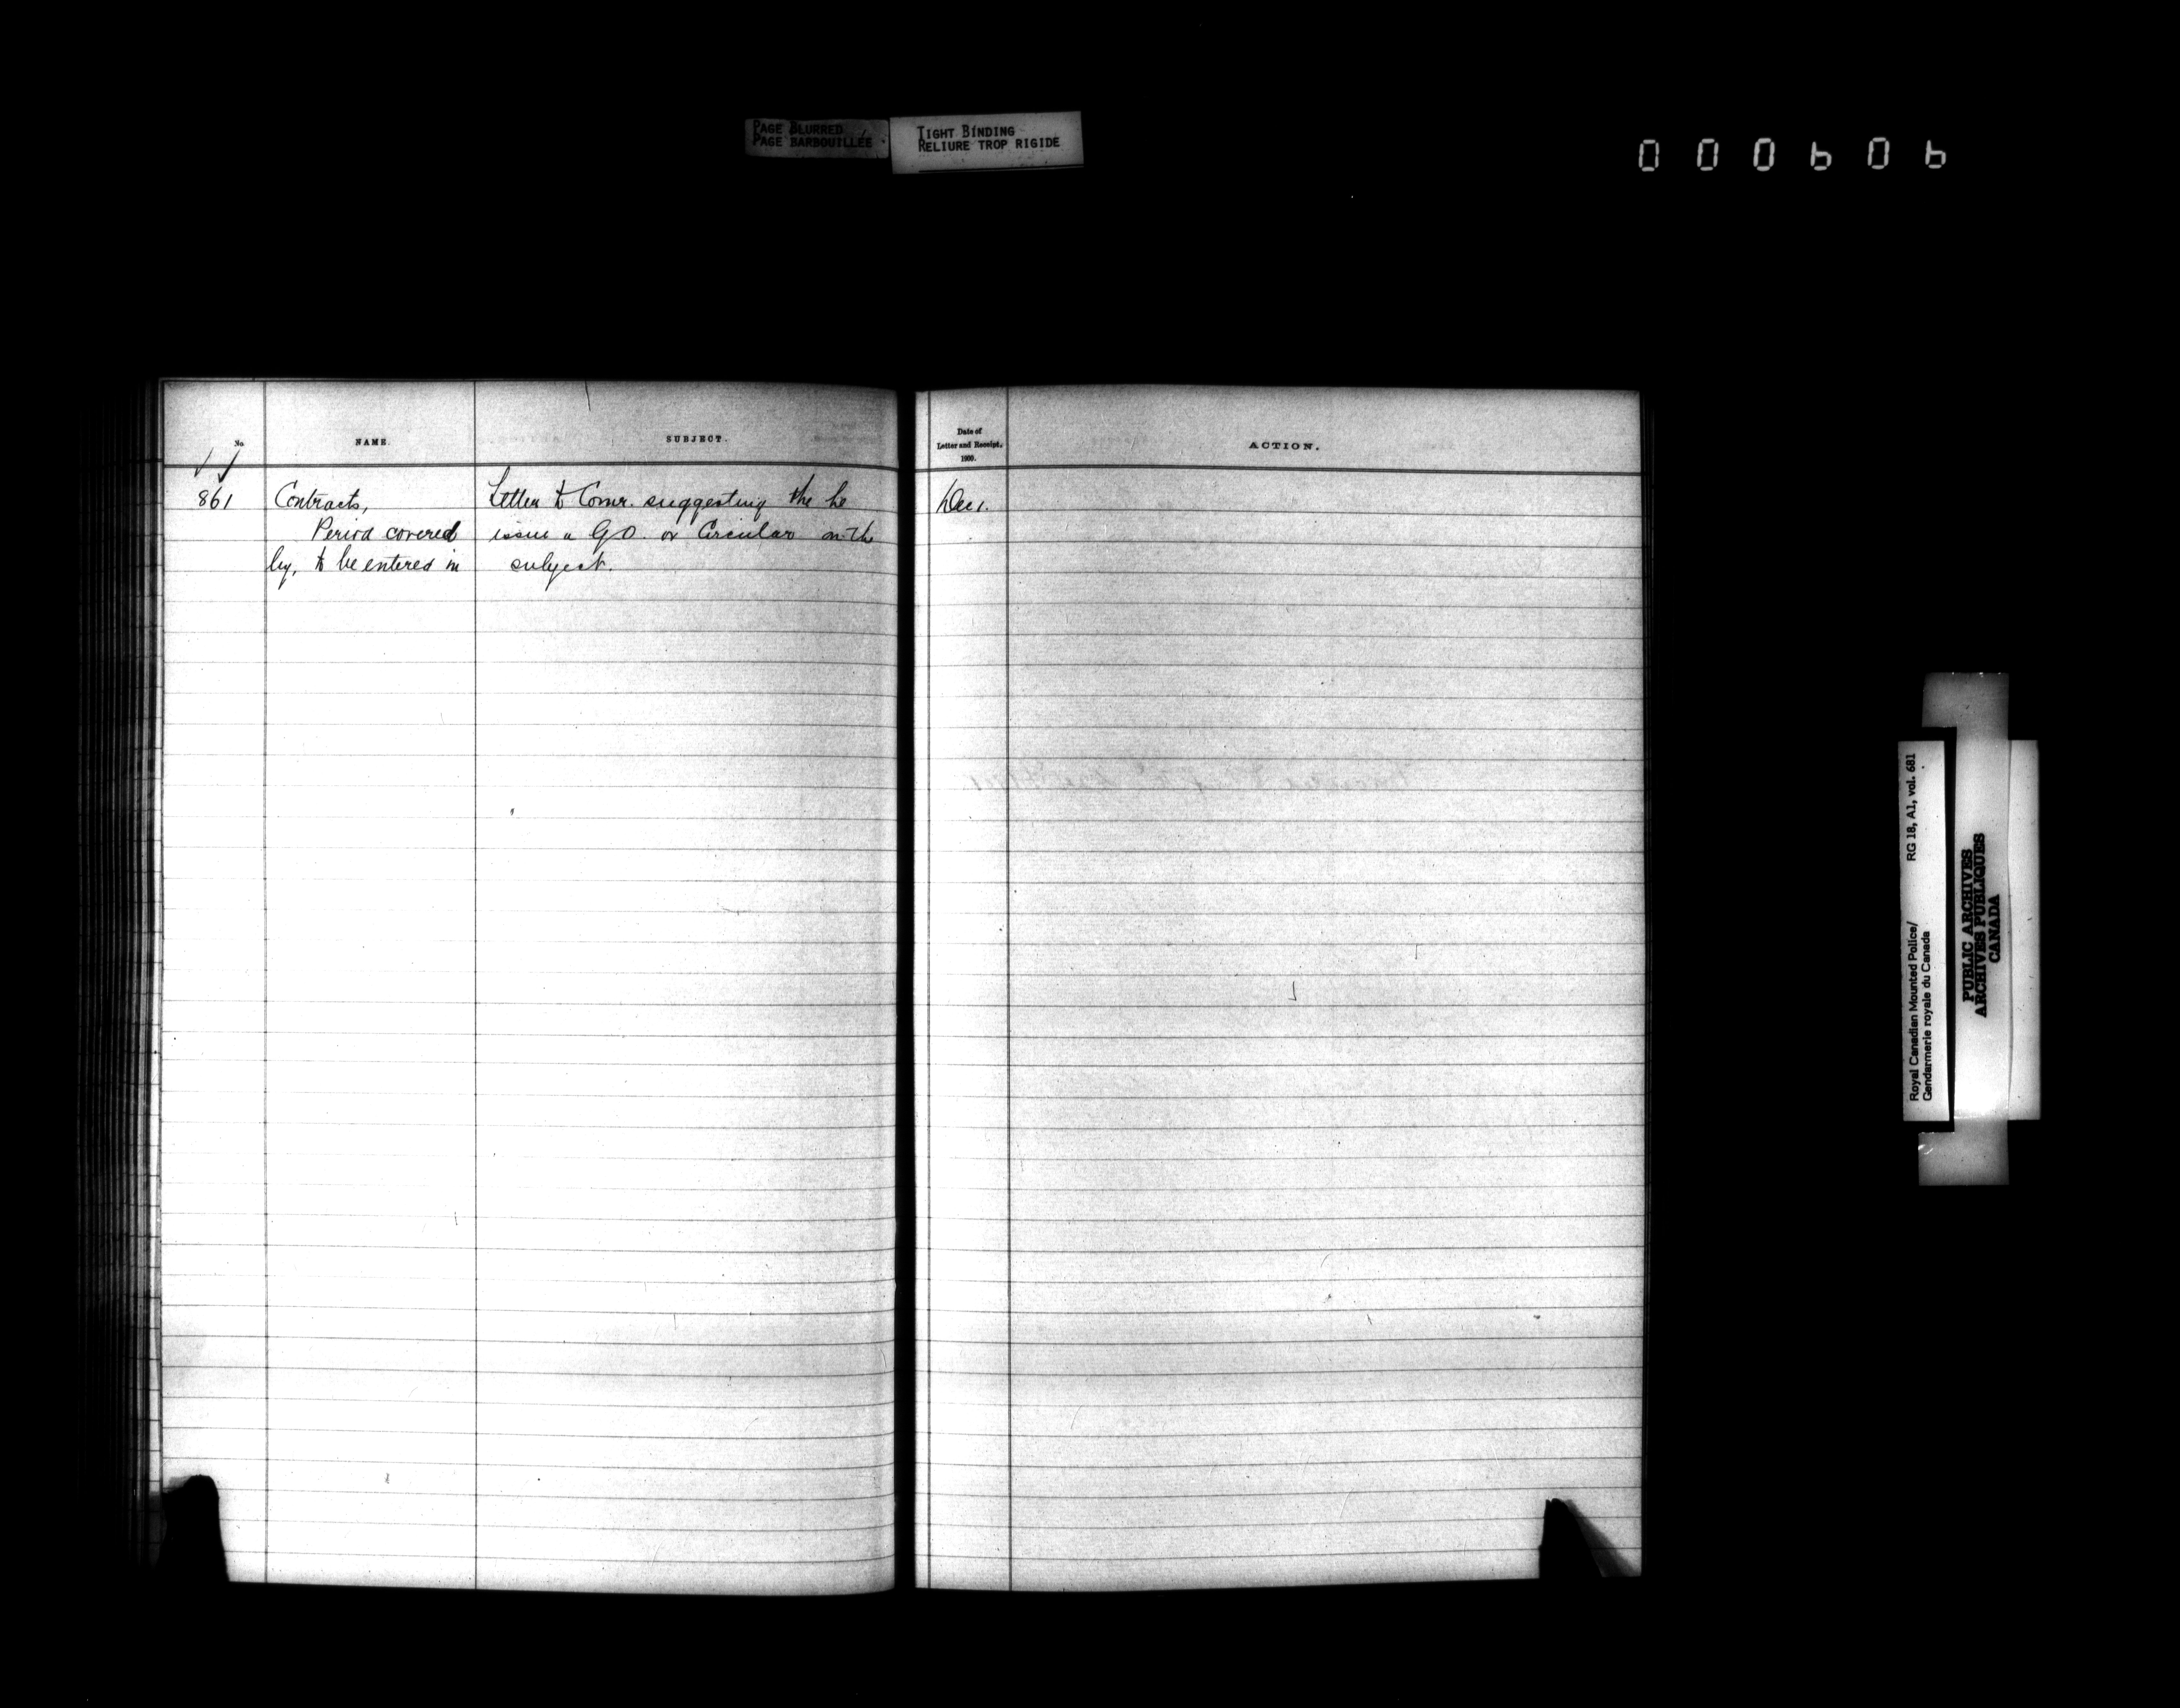 PAGE BLURRED
PAGE BARBOUILLÉE
TIGHT BINDING
RELIURE TROP RIGIDE
000606
No.
NAME.
SUBJECT.
861
Contracts,
Period covered
by, to be entered in
Letter to Comr. suggesting the he
issue a G.O. or Circular on the
subject.
Date of
Letter and Receipt.
1900.
ACTION.
Dec 1.
Royal Canadian Mounted Police/
Gendarmerie royale du Canada
RG 18, A1, vol. 681
PUBLIC ARCHIVES
ARCHIVES PUBLIQUES
CANADA